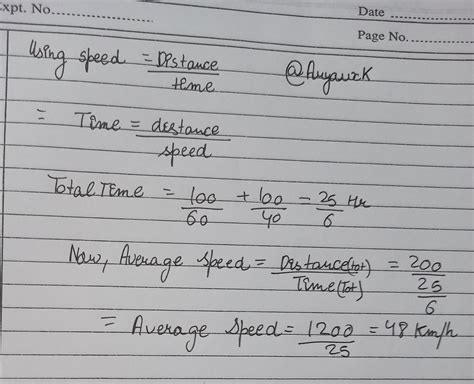 Expt. No.
Date
Page No.
Using speed = Distance/time
= Time = distance/speed
Total Time = 100/60 + 100/40 = 25/6 Hr
Now, Average speed = Distance(tot)/Time(Tot) = 200/(25/6)
= Average speed = 1200/25 = 48 Km/h